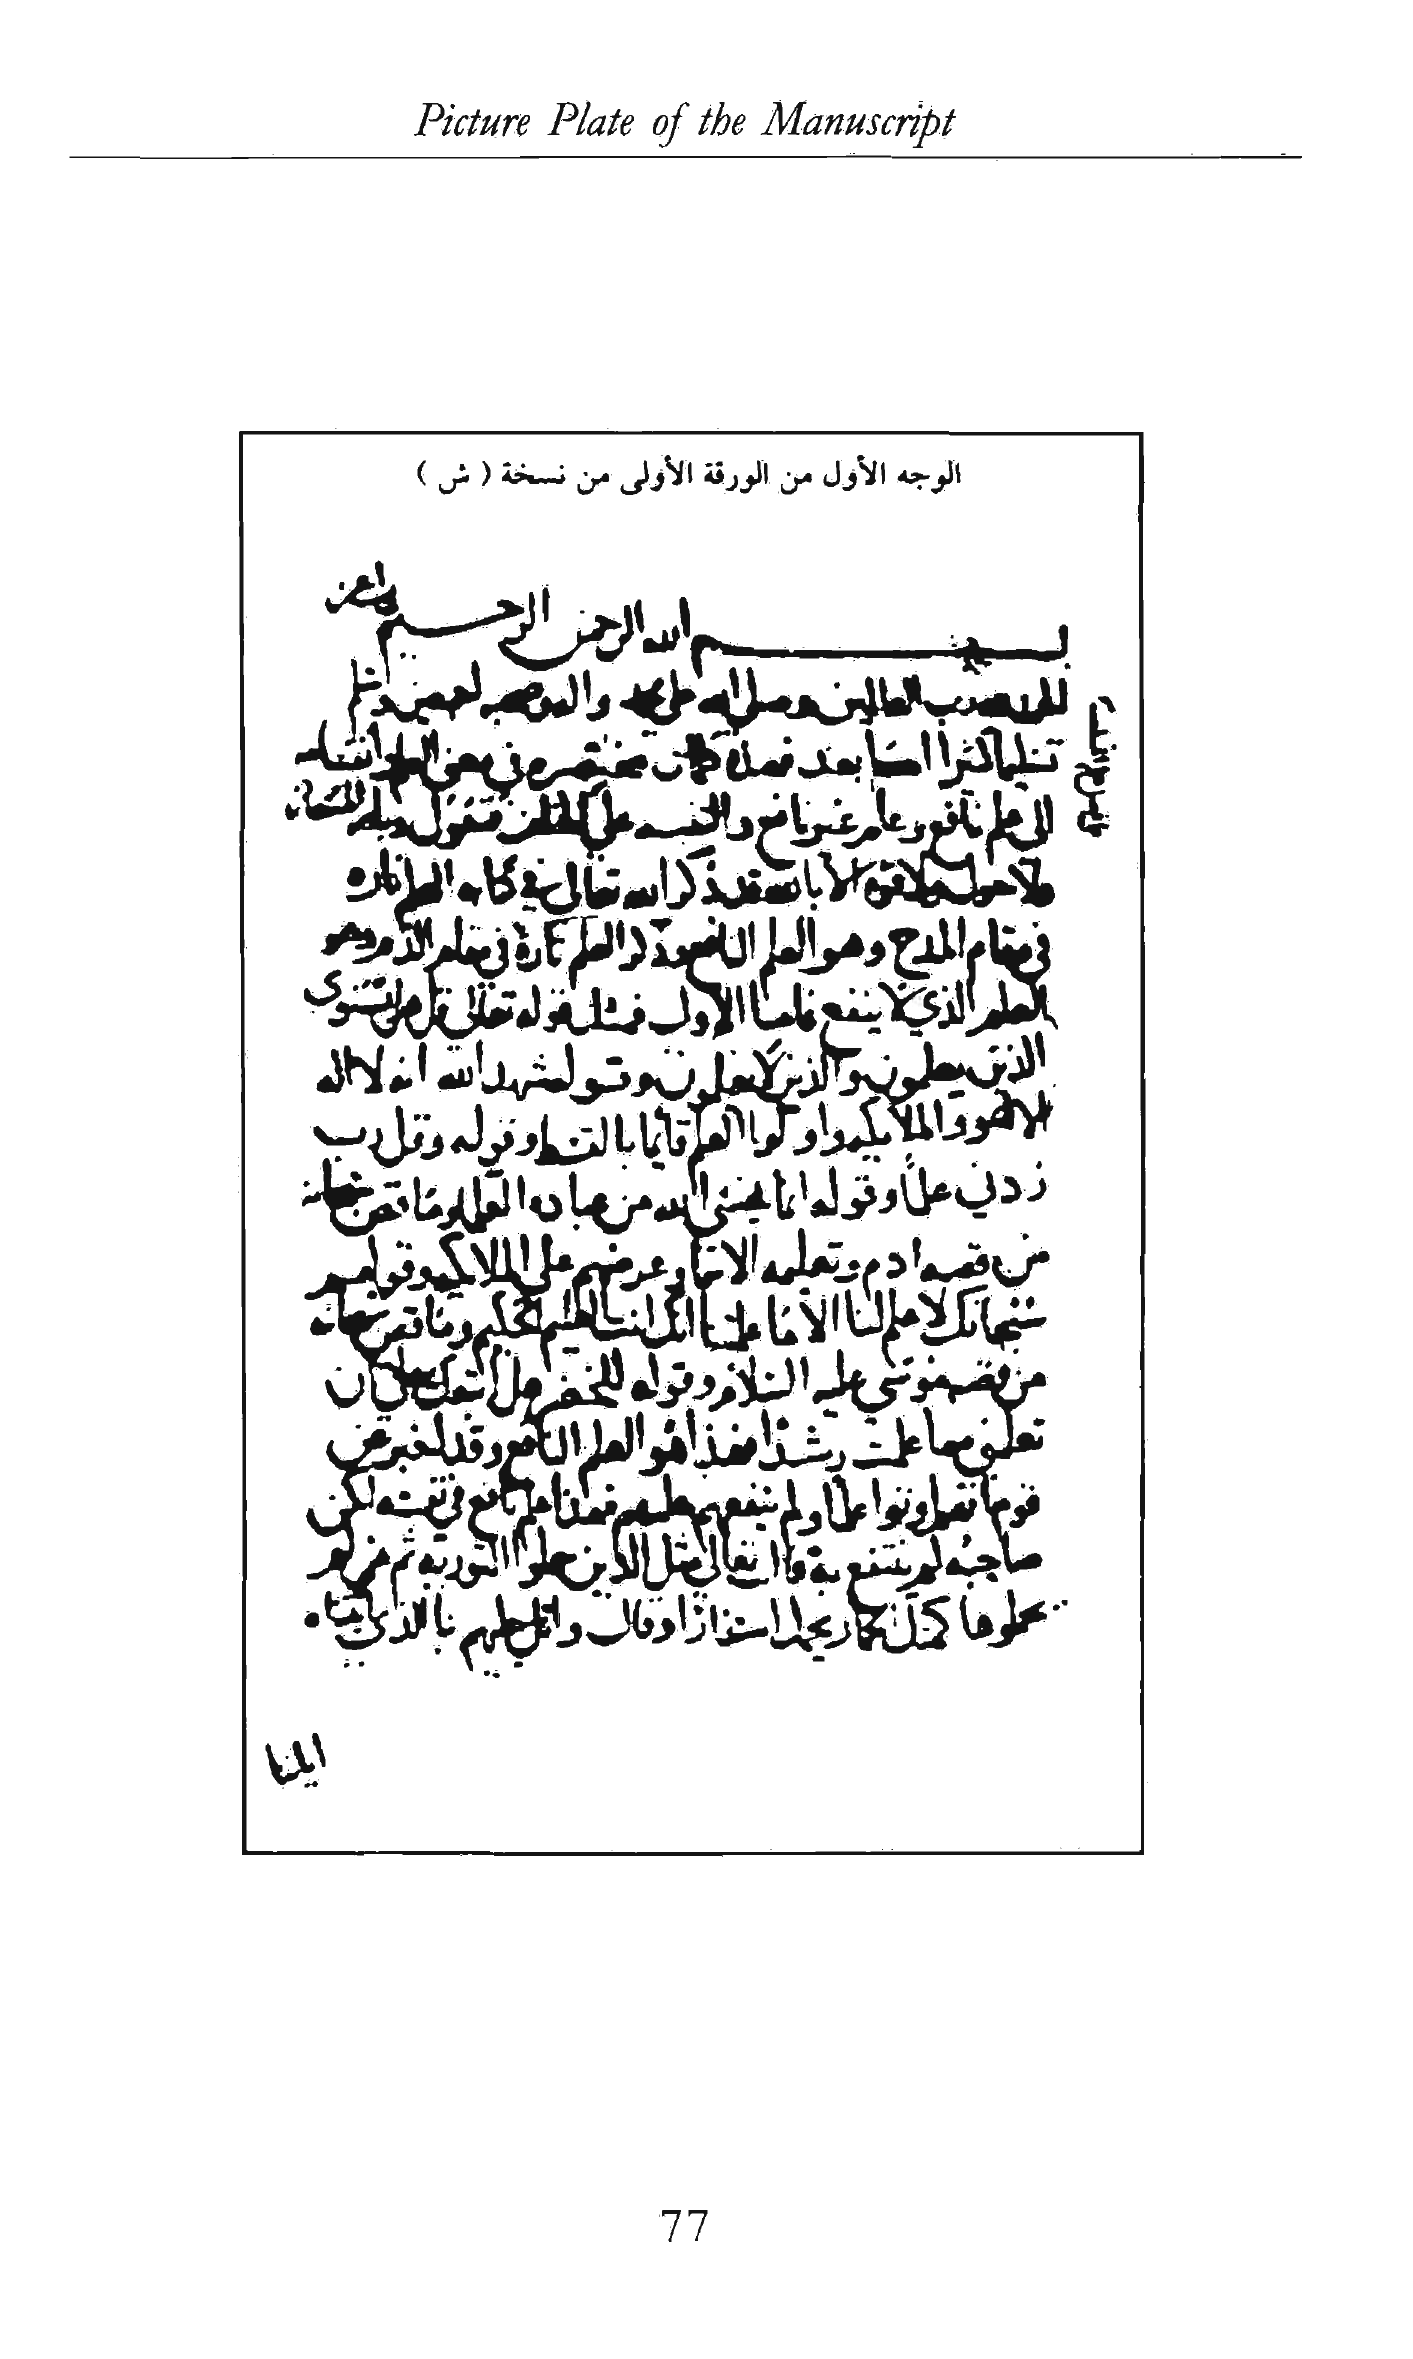 Picture Plate of the Manuscript
الوجه الأول من الورقة الأولى من نسخة ( ش )
بسم الله الرحمن الرحيم
الحمد لله رب العالمين وصلى الله على محمد واله وصحبه اجمعين وسلم
تسليما كثيرا اما بعد فهذه كلمات مختصره في معنى العلم وانقسامه
الى علم نافع وعلم غير نافع والتنبيه على فضل علم السلف على علم الخلف فنقول وبالله المستعان
ولا حول ولا قوه الا بالله قد ذكر الله تعالى في كتابه العلم تاره
في مقام المدح وهو العلم النافع وذكر العلم تارة في مقام الذم وهو
العلم الذي لا ينفع فاما الاول فمثل قوله تعالى قل هل يستوى
الذين يعلمون والذين لا يعلمون وقوله شهد الله انه لا اله
الا هو والملائكه واولوا العلم قائما بالقسط وقوله وقل رب
زدني علما وقوله انما يخشى الله من عباده العلماء وما قص سبحانه
من قصه ادم وتعليمه الاسماء وعرضهم على الملائكه وقولهم
سبحانك لا علم لنا الا ما علمتنا انك انت العليم الحكيم وما قص سبحانه
من قصه موسى عليه السلام وقوله للخضر هل اتبعك على ان
تعلمني مما علمت رشدا فهذا هو العلم النافع وقد اخبر عن
قوم انهم اوتوا علما ولم ينفعهم علمهم فهذا علم نافع في نفسه لكن
صاحبه لم ينتفع به قال تعالى مثل الذين حملوا التوريه ثم لم
يحملوها كمثل الحمار يحمل اسفارا وقال واتل عليهم نبا الذي اتيناه
اياتنا
77